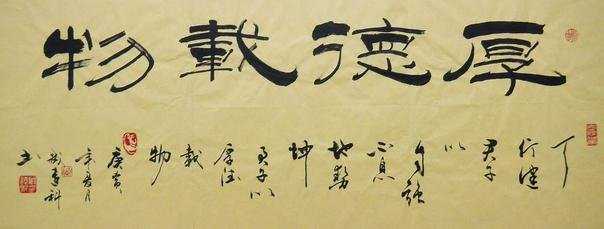 厚德載物
天
行健
君子
以
自強
不息
地勢
坤
君子以
厚德
載
物
庚寅
年夏月
书